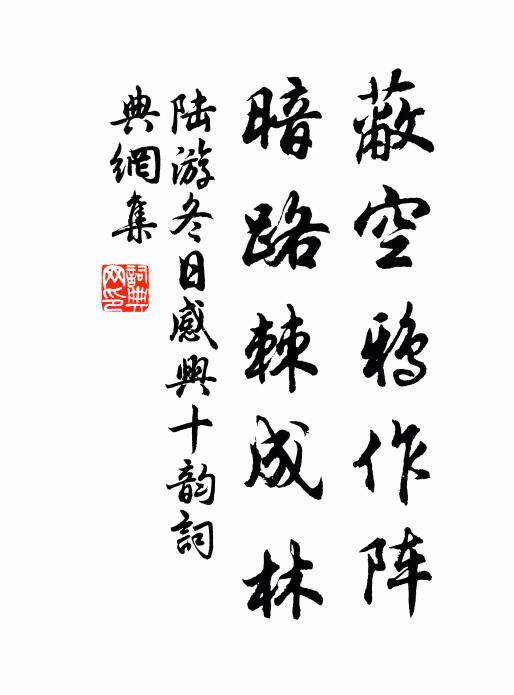 蔽空鸦作阵
暗路棘成林
陆游冬日感興十韵詞
典網集
詞典网印